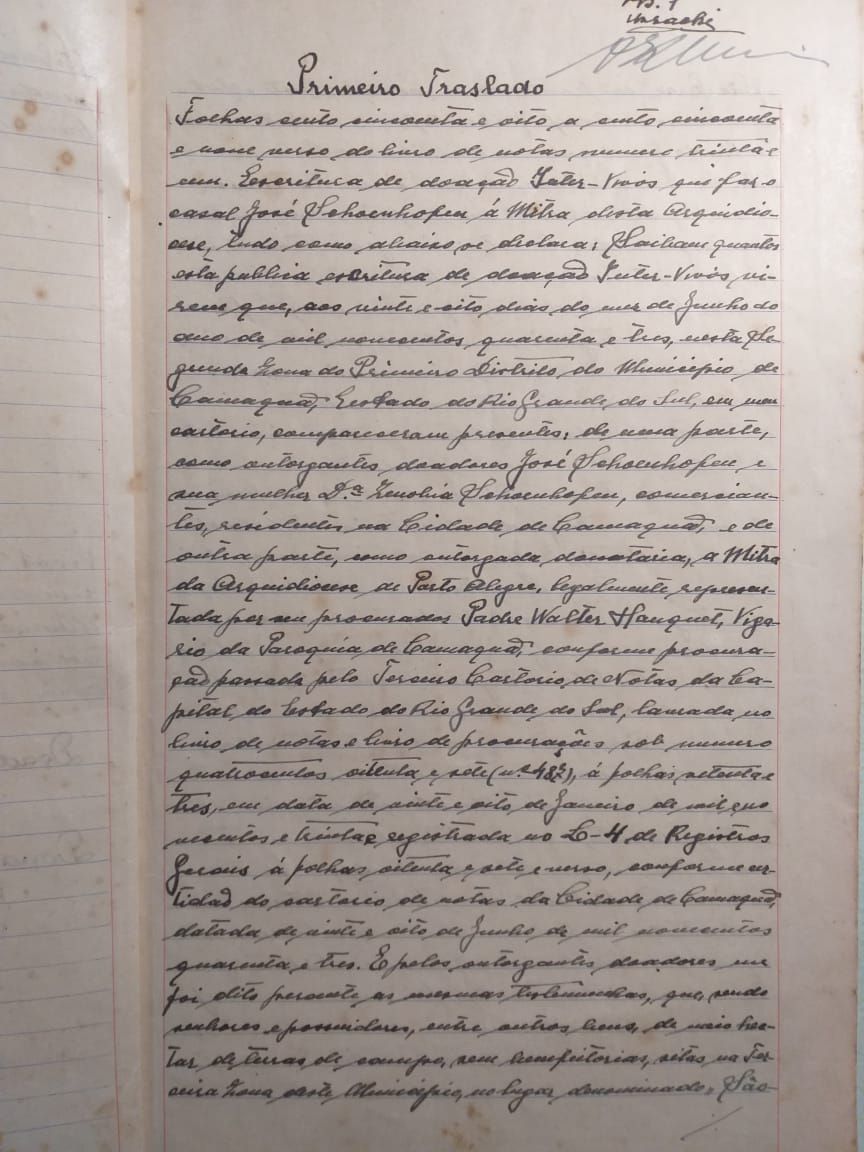 Primeiro Traslado
Folhas cento cincoenta e oito a cento cincoenta
e nove verso do livro de notas numero trinta e
um. Escritura de doação Inter-Vivos que faz o
casal José Schoenhofen á Mitra desta Arquidio-
cese, tudo como abaixo se declara: Saibam quantos
esta publica escritura de doação Inter-Vivos vi-
rem que, aos vinte e oito dias do mez de Junho do
ano de mil novecentos quarenta e tres, nesta Se-
gunda Zona do Primeiro Distrito do Município de
Camaquã, Estado do Rio Grande do Sul, em meu
cartorio, compareceram presentes: de uma parte,
como outorgantes doadores José Schoenhofen e
sua mulher D.ª Zenobia Schoenhofen, comercian-
tes, residentes na Cidade de Camaquã, e de
outra parte, como outorgada donataria, a Mitra
da Arquidiocese de Porto Alegre, legalmente represen-
tada por seu procurador Padre Walter Hanquet, Viga-
rio da Paroquia de Camaquã, conforme procura-
ção passada pelo Terceiro Cartorio de Notas da Ca-
pital do Estado do Rio Grande do Sul, lavrada no
livro de notas e livro de procurações sob numero
quatrocentos oitenta e sete (n.º 487), á folhas setenta e
tres, em data de vinte e oito de Janeiro de mil no
vecentos e trinta e registrada no L-4 de Registros
Gerais á folhas oitenta e sete e verso, conforme cer-
tidão do cartorio de notas da Cidade de Camaquã,
datada de vinte e oito de Junho de mil novecentos
quarenta e tres. E pelos outorgantes doadores me
foi dito perante as mesmas testemunhas, que, sendo
senhores e possuidores, entre outros bens, de meio hec-
tar de terras de campo, sem bemfeitorias, sitas na Ter-
ceira Zona deste Município, no lugar denominado: São